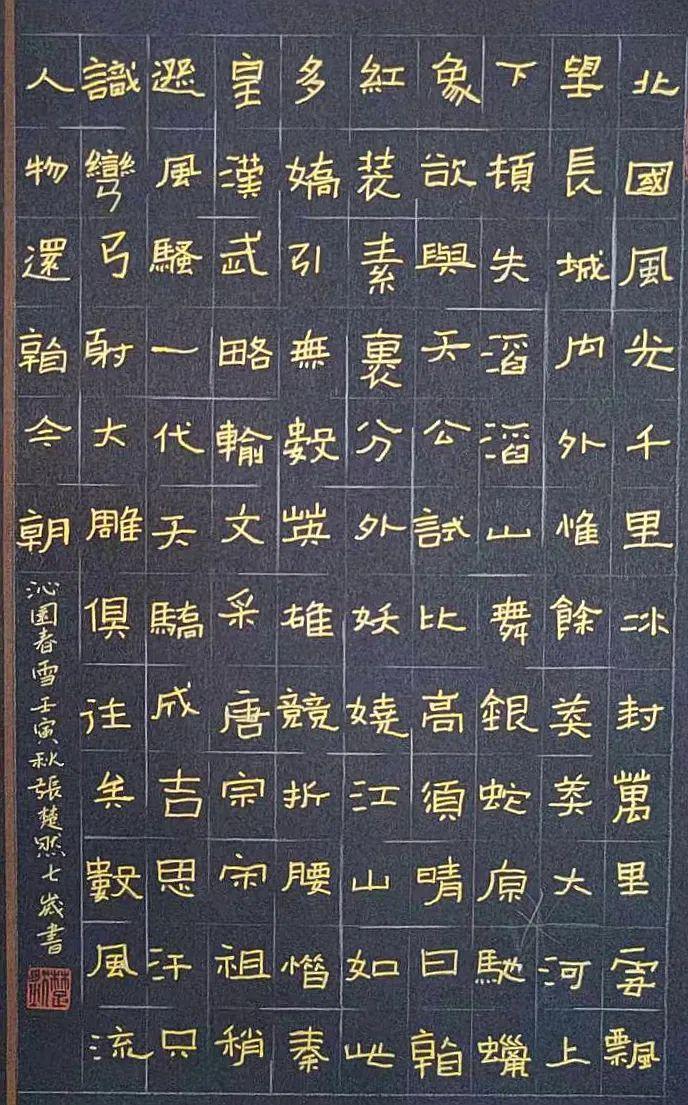 北國風光千里冰封萬里雪飄
望長城內外惟餘莽莽大河上
下頓失滔滔山舞銀蛇原馳蠟
象欲與天公試比高須晴日看
紅装素裹分外妖嬈江山如此
多嬌引無數英雄競折腰惜秦
皇漢武略輸文采唐宗宋祖稍
遜風騷一代天驕成吉思汗只
識彎弓射大雕俱往矣數風流
人物還看今朝
沁園春雪壬寅秋張楚然七歲書